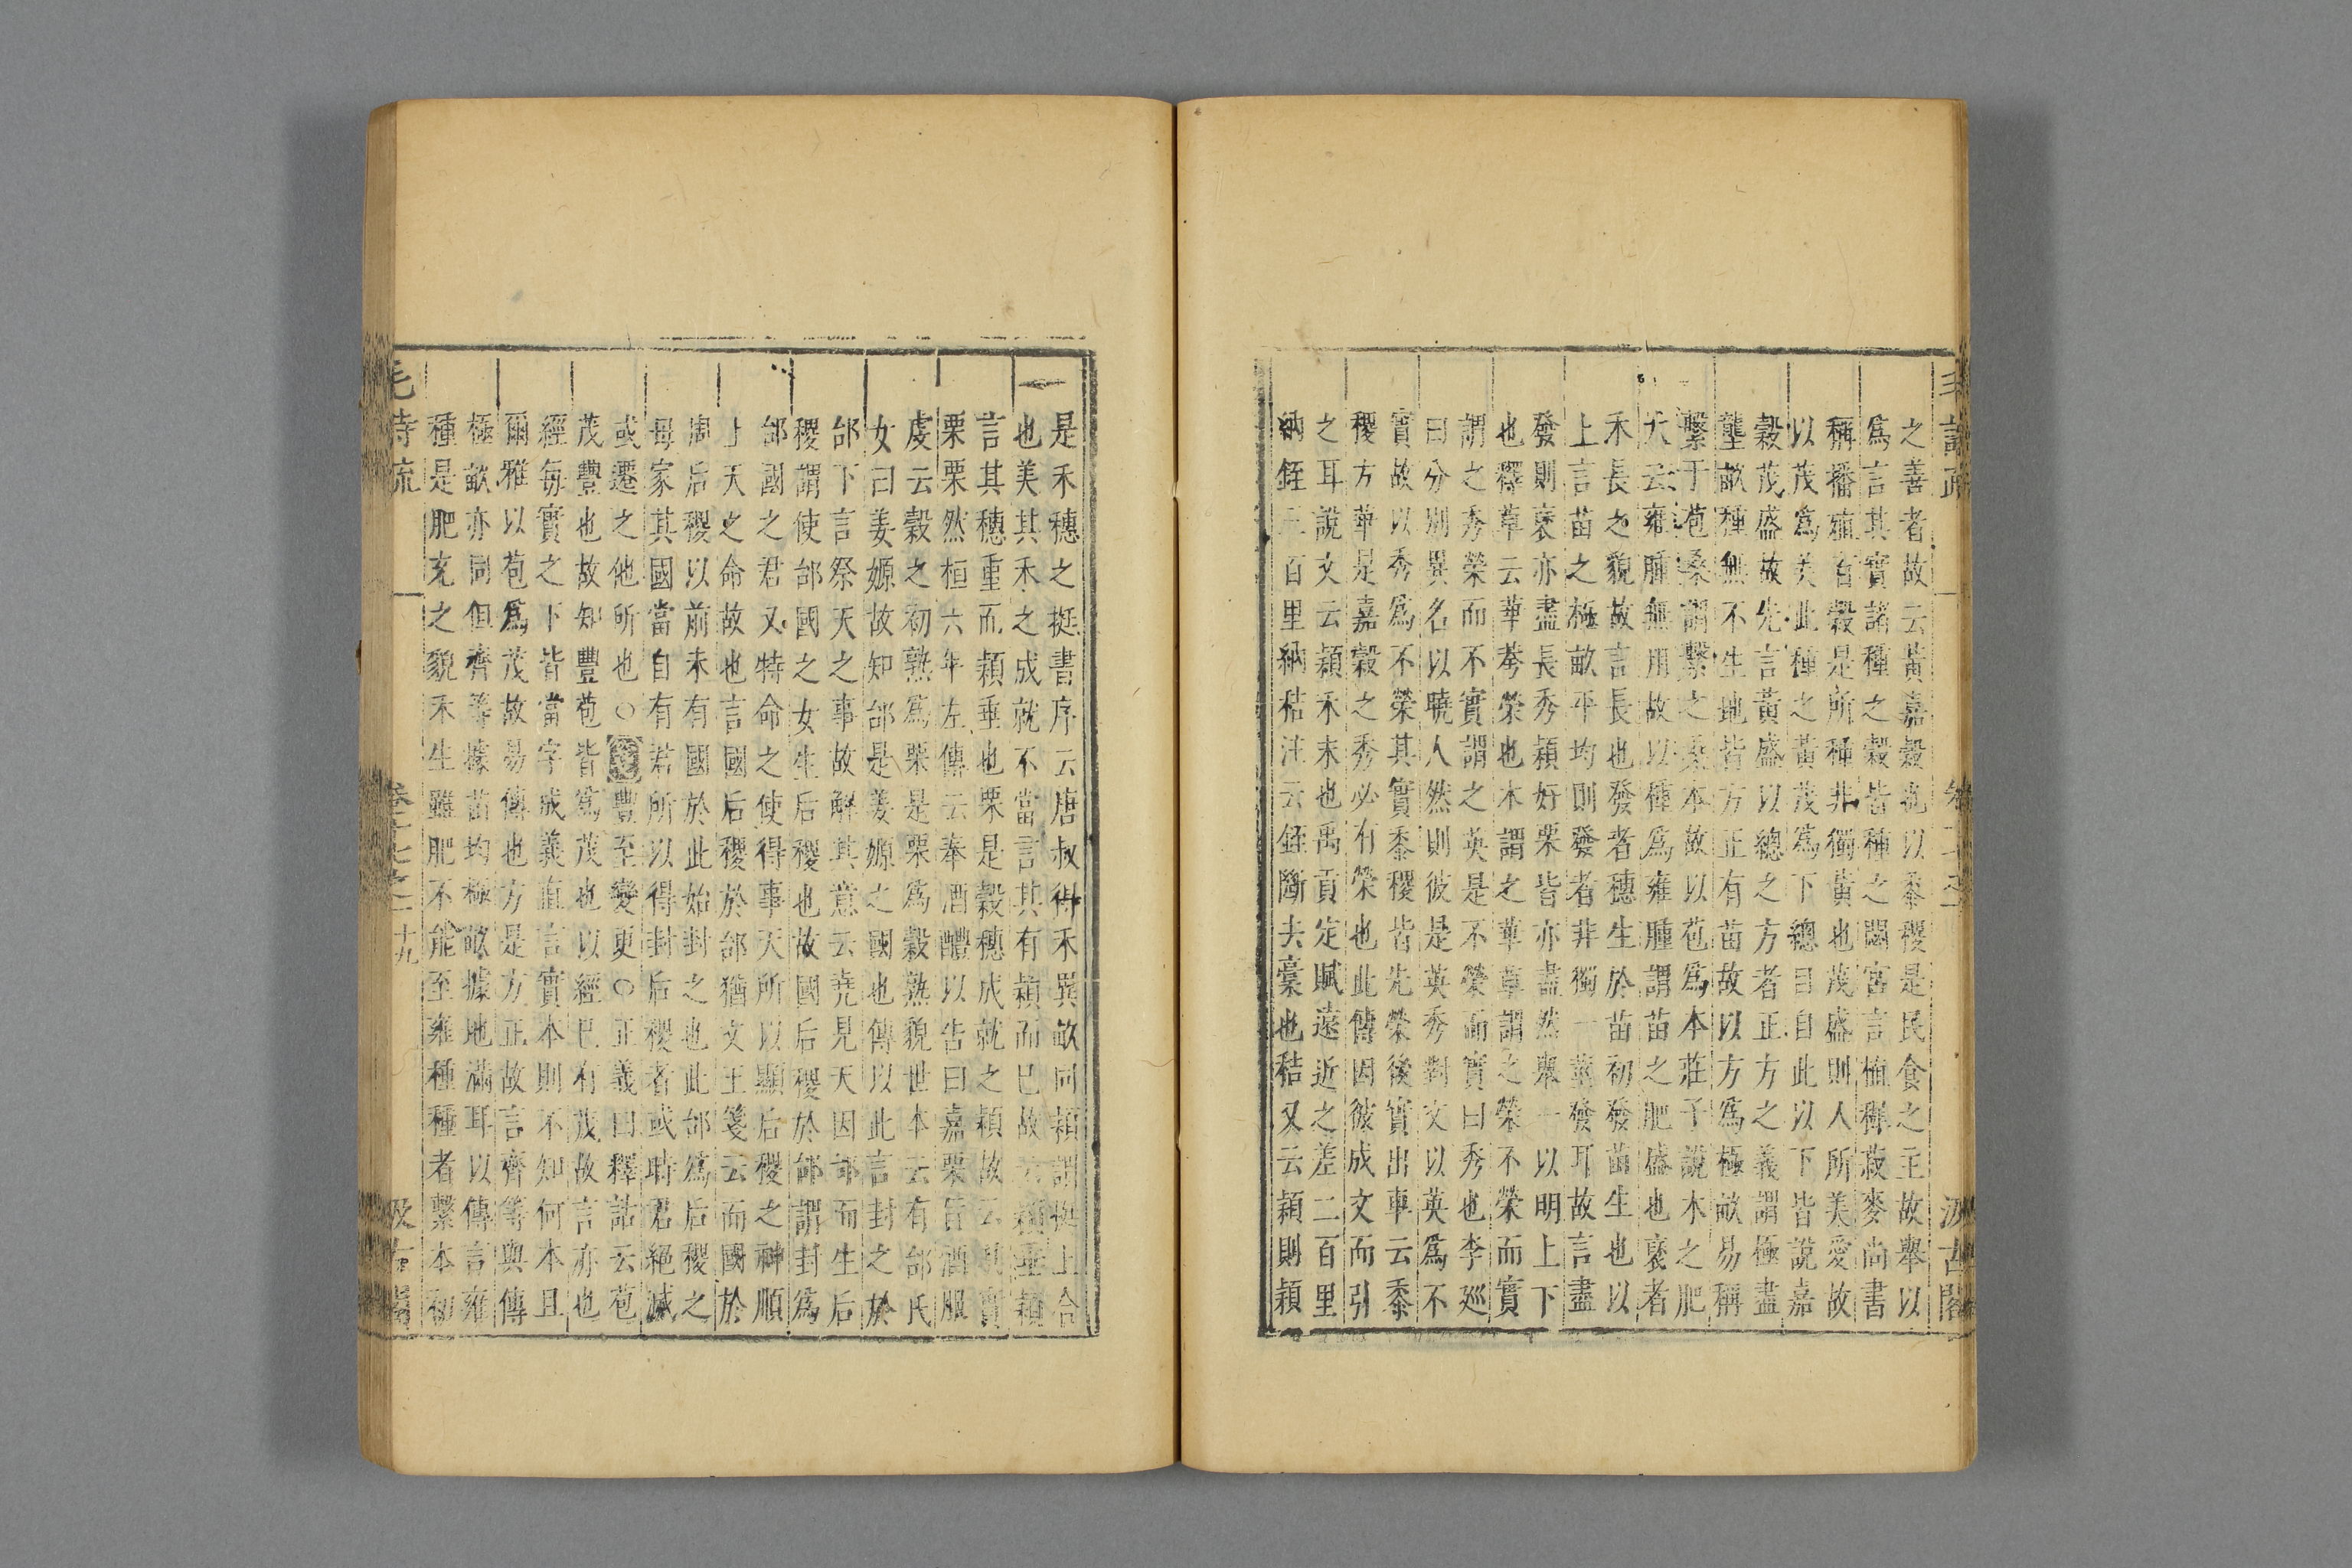 毛詩疏
汲古閣
之善者故云黃嘉穀也以黍稷是民食之主故舉以
爲言其實諸種之穀皆種之閟宮言稙稺菽麥尚書
稱播殖百穀是所種非獨黃也茂盛則人所美愛故
以茂爲美此種之黃茂爲下總目自此以下皆說嘉
穀茂盛故先言黃盛以總之方者正方之義謂極盡
壟畝種無不生地皆方正有苗故以方爲極畝易稱
繫于苞桑謂繫之桑本故以苞爲本莊子說木之肥
大云雍腫無用故以種爲雍腫謂苗之肥盛也襃者
禾長之貌故言長也發者穗生於苗初發苗生也以
上言苗之極畝平均則發者非獨一莖發耳故言盡
發則襃亦盡長秀穎好栗皆亦盡然舉一以明上下
也釋草云華荂榮也木謂之華草謂之榮不榮而實
謂之秀榮而不實謂之英是不榮而實曰秀也李廵
曰分別異名以曉人然則彼是英秀對文以英爲不
實故以秀爲不榮其實黍稷皆先榮後實出車云黍
稷方華是嘉穀之秀必有榮也此傳因彼成文而引
之耳說文云穎禾末也禹貢定賦遠近之差二百里
納銍三百里納秸注云銍斷去藁也秸又云穎則穎
是禾穗之挺書序云唐叔得禾異畝同穎謂挺上合
也美其禾之成就不當言其有穎而已故云穎垂穎
言其穗重而穎垂也栗是穀穗成就之穎故云其實
栗栗然桓六年左傳云奉酒醴以告曰嘉栗旨酒服
虔云穀之初熟爲栗是栗爲穀熟貌世本云有邰氏
女曰姜嫄故知邰是姜嫄之國也傳以此言封之於
邰下言祭天之事故解其意云堯見天因邰而生后
稷謂使邰國之女生后稷也故國后稷於邰謂封爲
邰國之君又特命之使得事天所以顯后稷之神順
上天之命故也言國后稷於邰猶文王箋云而國於
周后稷以前未有國於此始封之也此邰爲后稷之
母家其國當自有君所以得封后稷者或時君絶滅
或遷之他所也○豐至變更○正義曰釋詁云苞
茂豐也故知豐苞皆爲茂也以經已有茂故言亦也
經每實之下皆當字成義直言實本則不知何本且
爾雅以苞爲茂故易傳也方是方正故言齊等與傳
極畝亦同但齊等據苗均極畝據地滿耳以傳言雍
種是肥充之貌禾生雖肥不能至雍種種者繫本初
毛詩疏
卷十七之一
十九
汲古閣